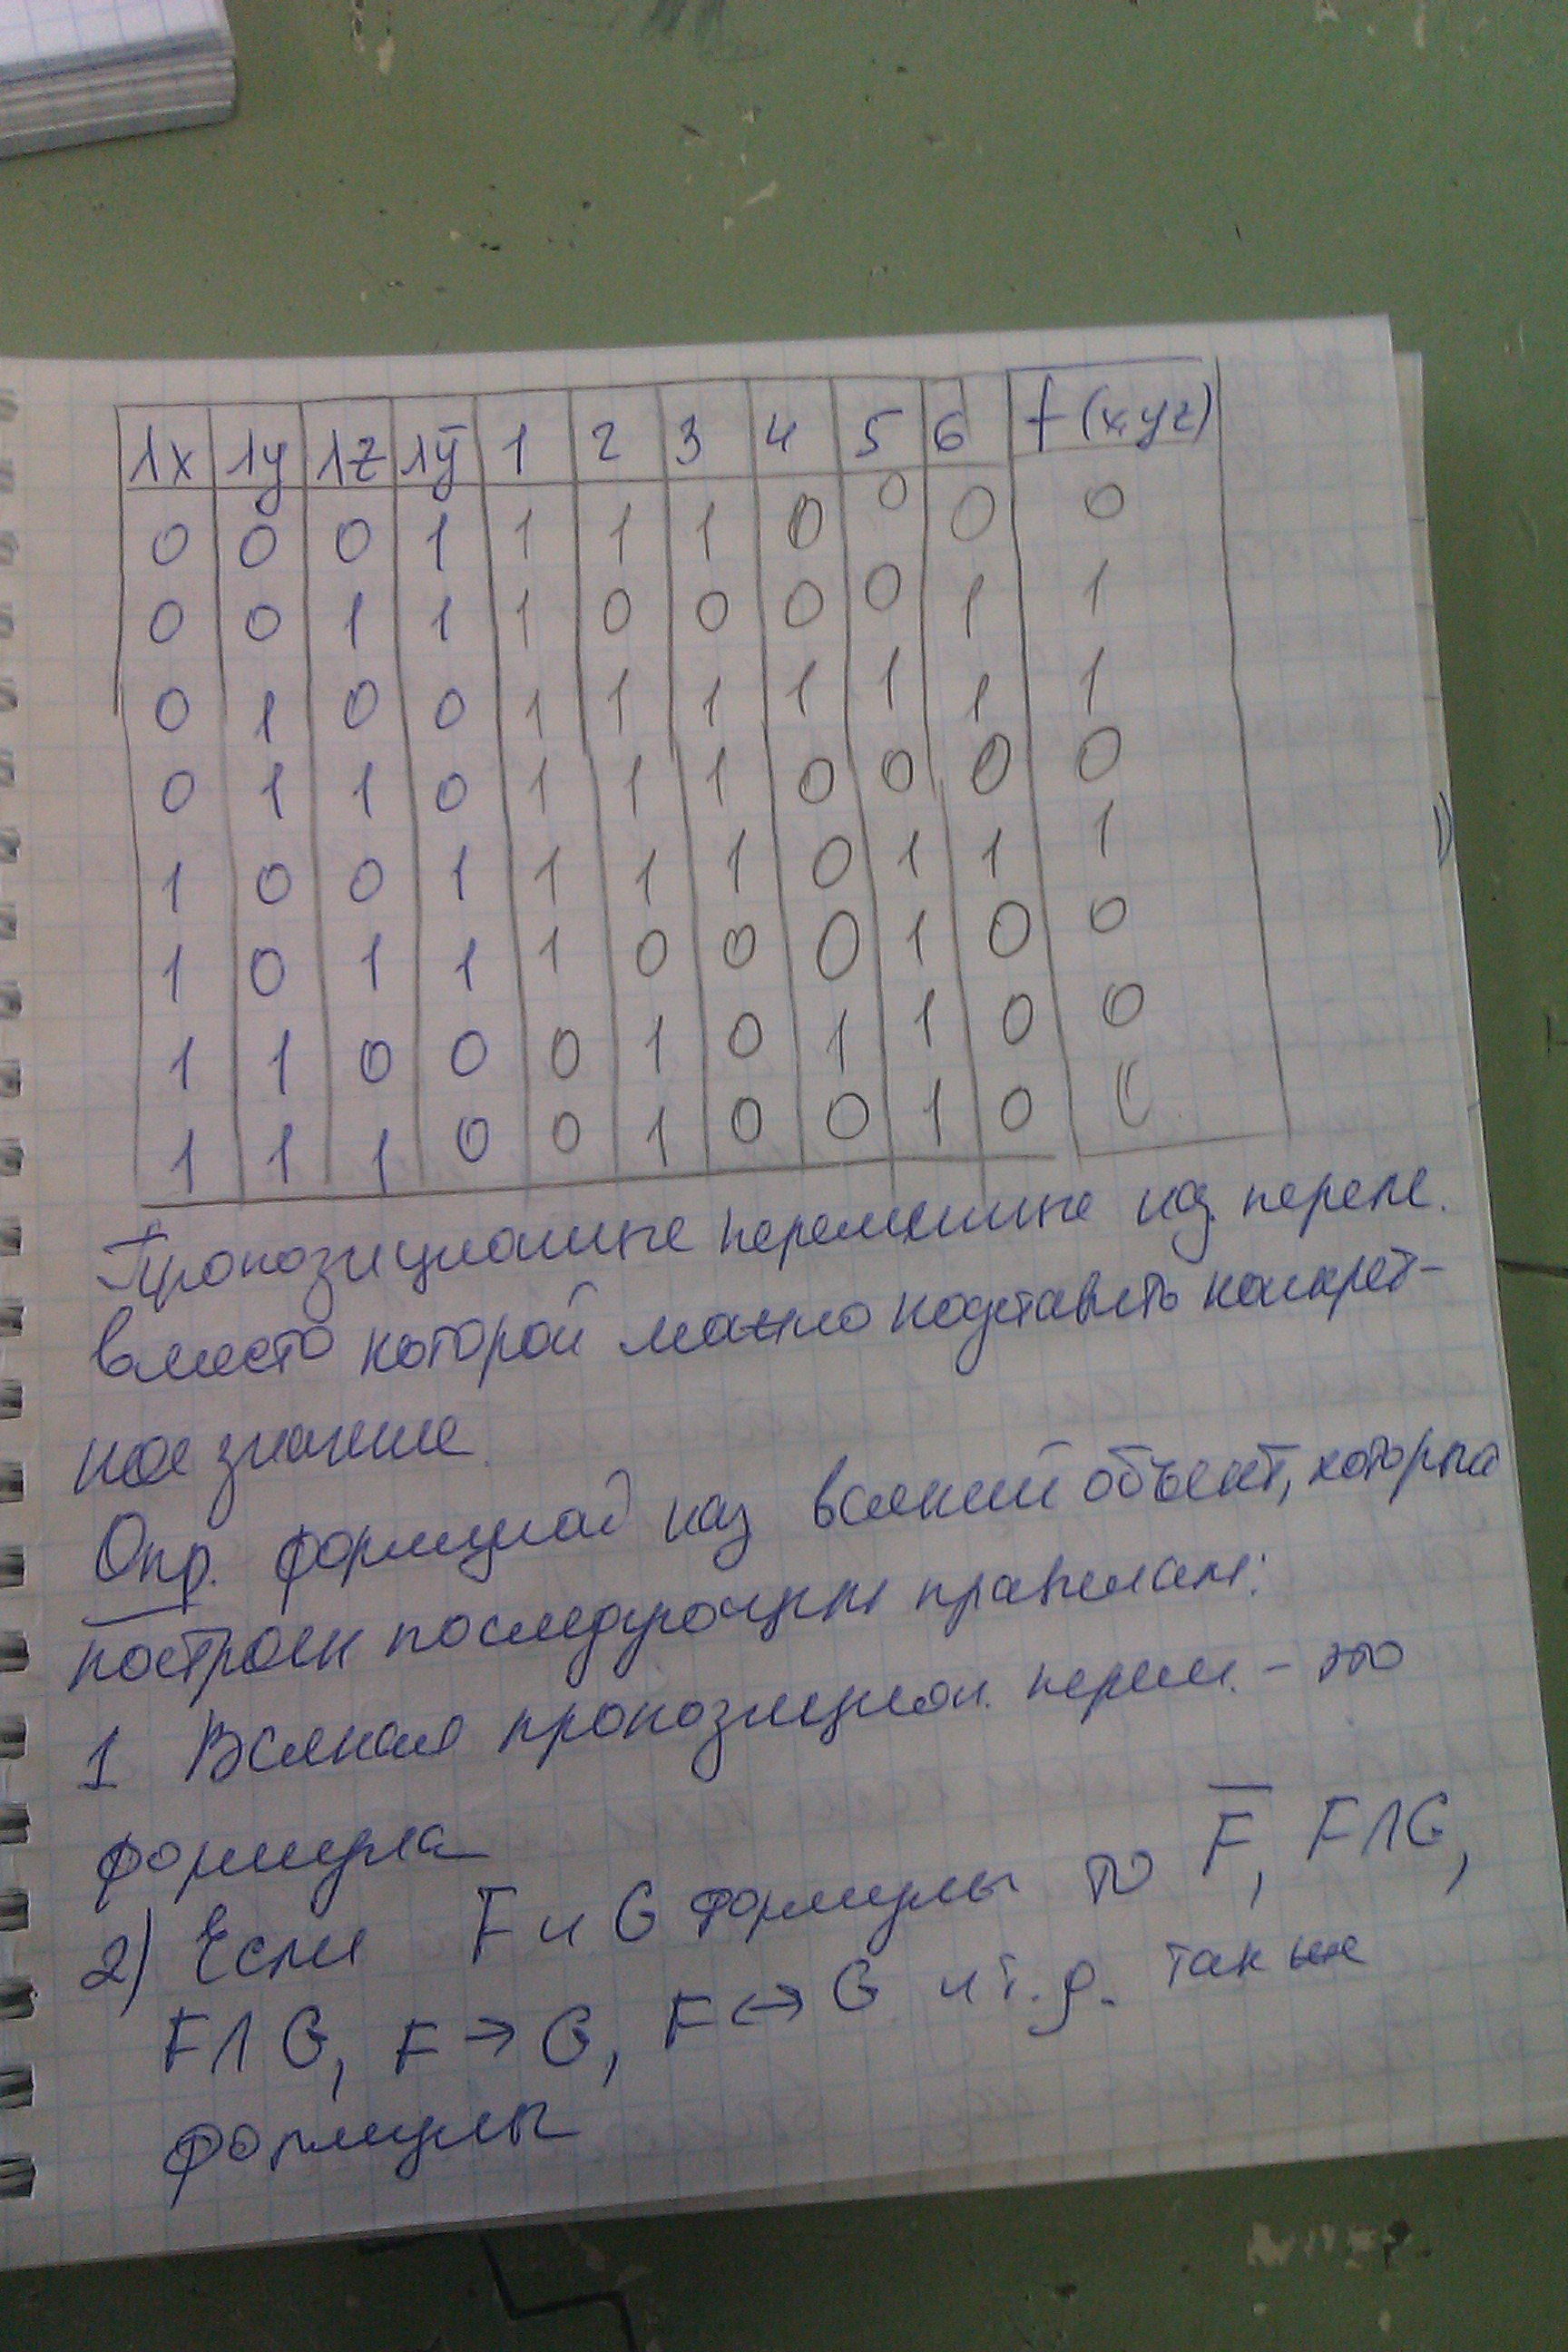 λx λy λz λȳ 1 2 3 4 5 6 f(x,yz)
0 0 0 1 1 1 1 0 0 0 0
0 0 1 1 1 0 0 0 0 1 1
0 1 0 0 1 1 1 1 1 1 1
0 1 1 0 1 1 1 0 0 0 0
1 0 0 1 1 1 1 0 1 1 1
1 0 1 1 1 0 0 0 1 0 0
1 1 0 0 0 1 0 1 1 0 0
1 1 1 0 0 1 0 0 1 0 0
Пропозиционные переменные наз. перем.
вместо которой можно подставить конкрет-
ное значение.
Опр. формулой наз всякий объект, который
построен последующим правилам:
1 Всякая пропозицион. перем. - это
формула
2) Если F и G формулы то F̅, F∧G,
F∧G, F→G, F↔G и т.д. так же
формулы